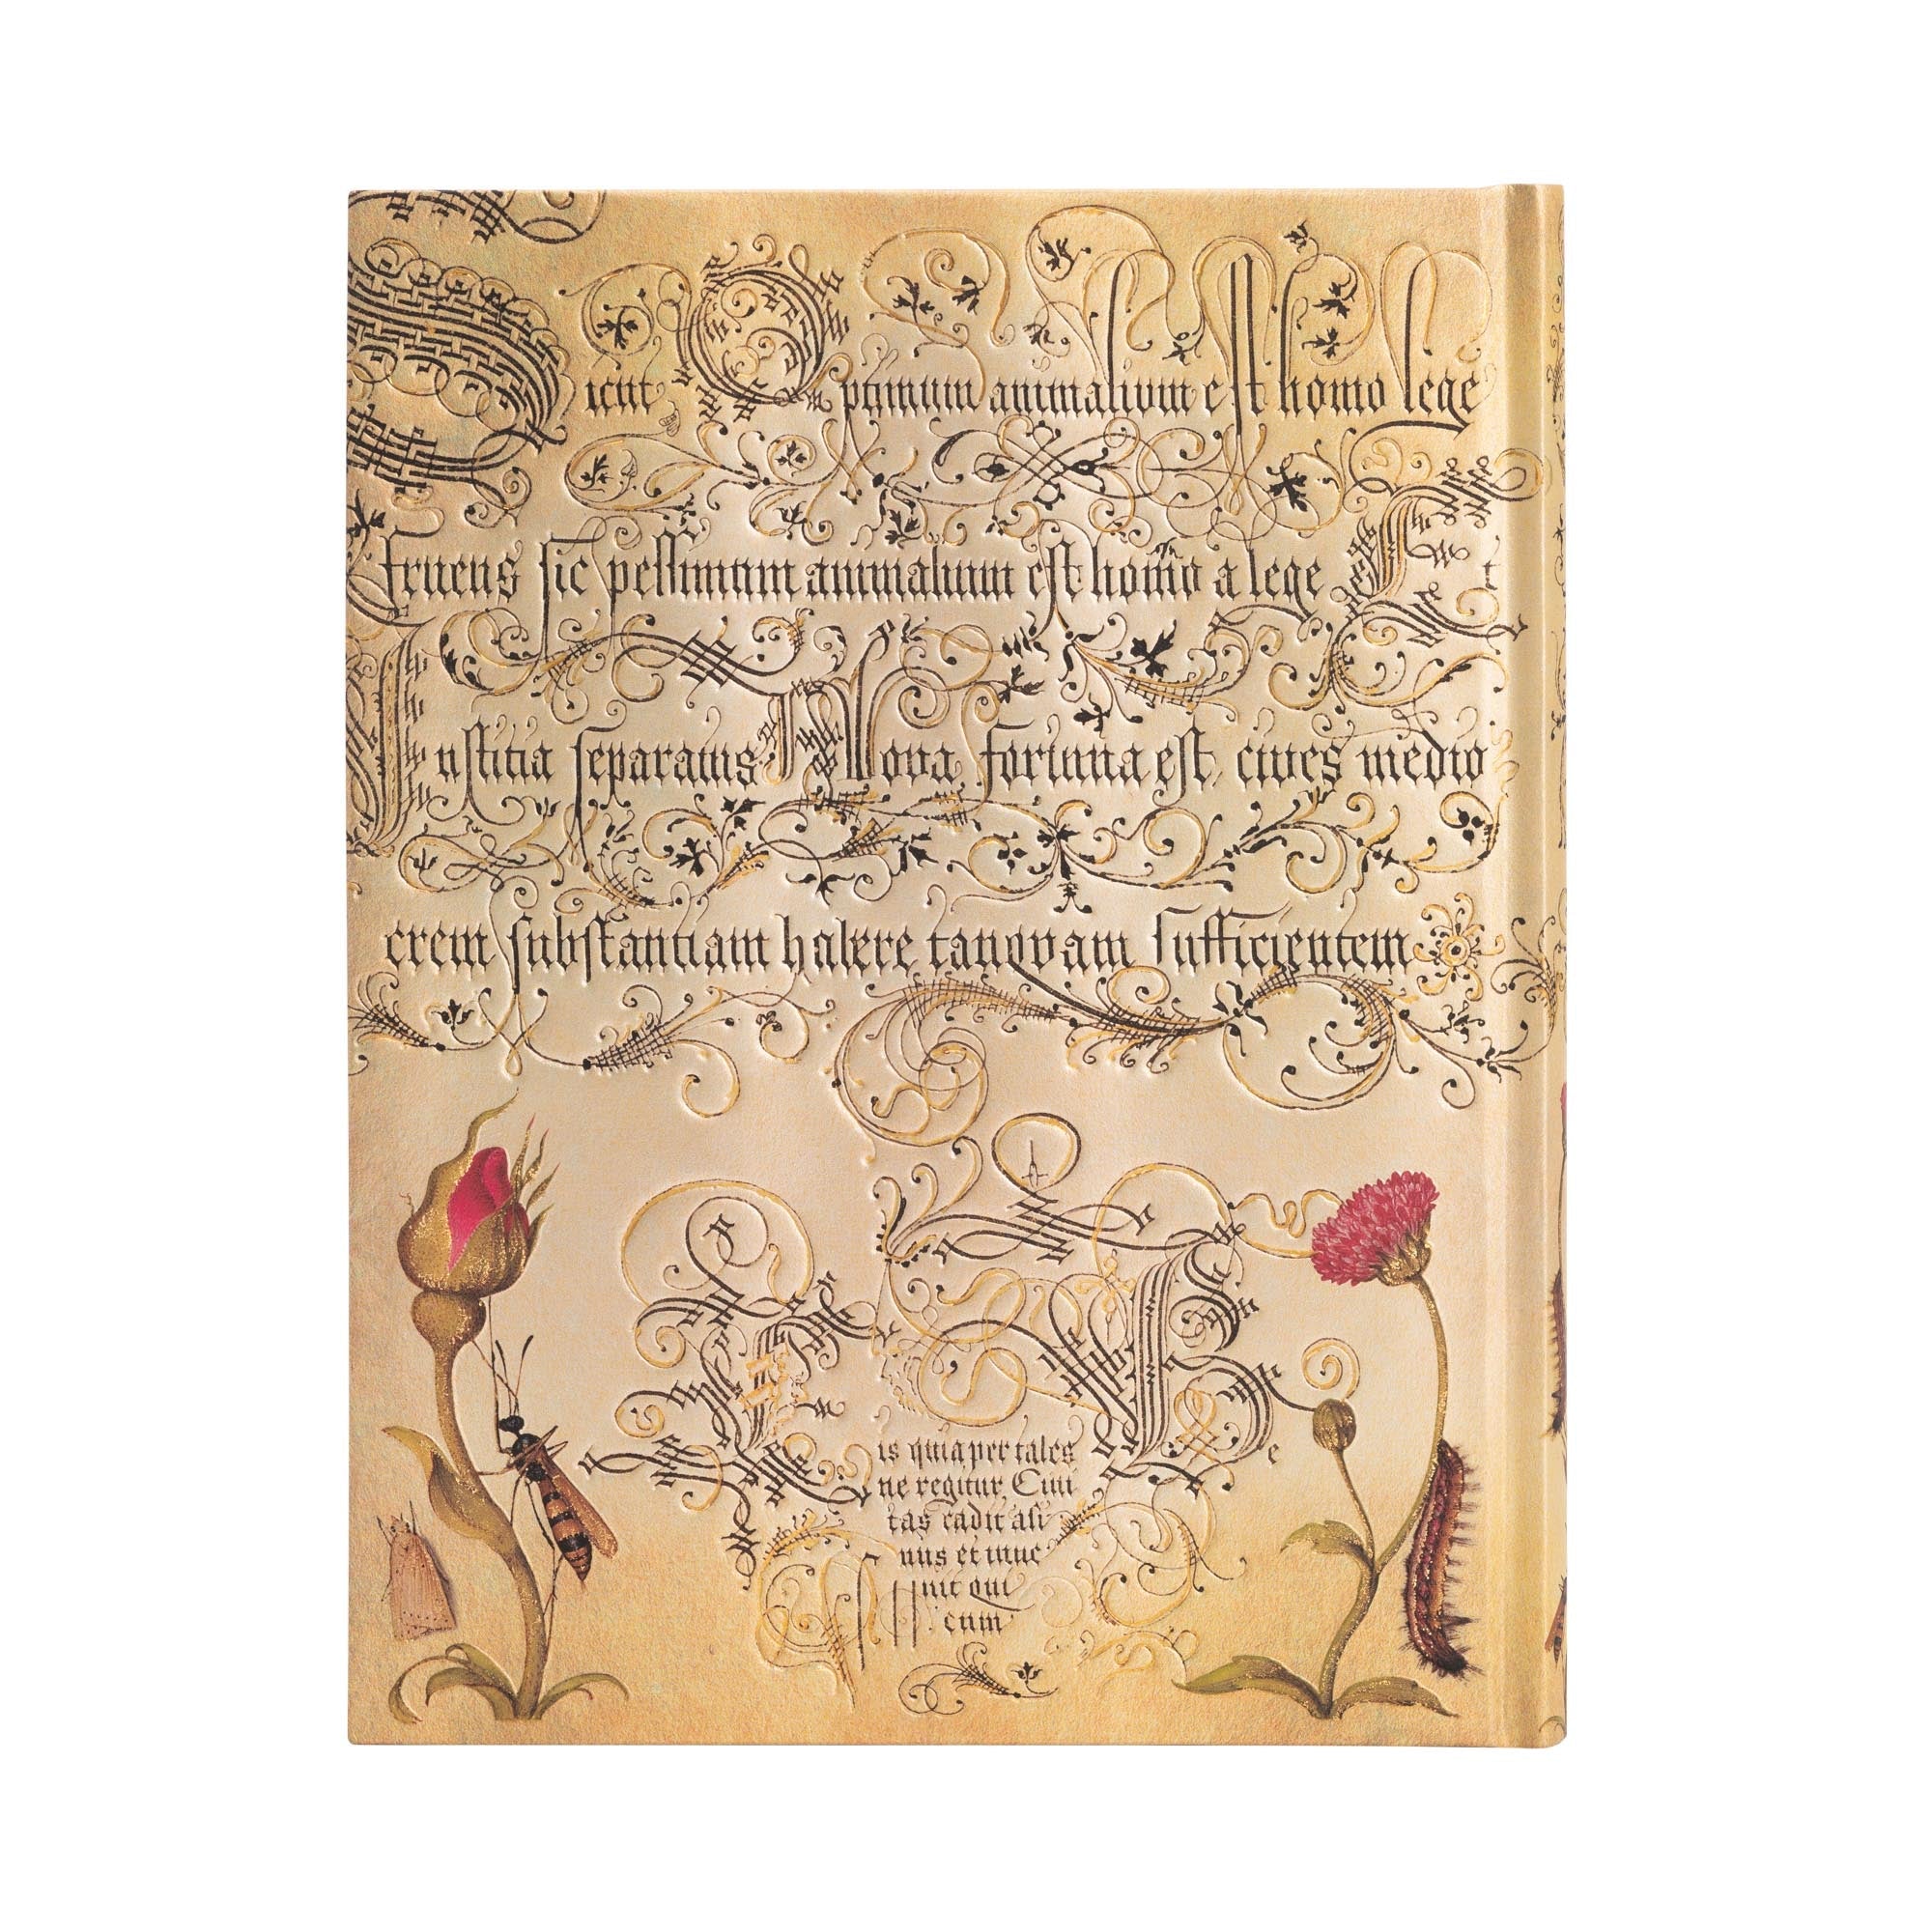 Sicut Optimum animalium est homo lege
fruens sic pessimum animalium est homo a lege Et
Iustitia separatus Nova fortuna est, cives medio
crem substantiam habere tanquam sufficientem
is quia per tales
ne regitur Civi
tas cadit asi
nus et
qui
cum